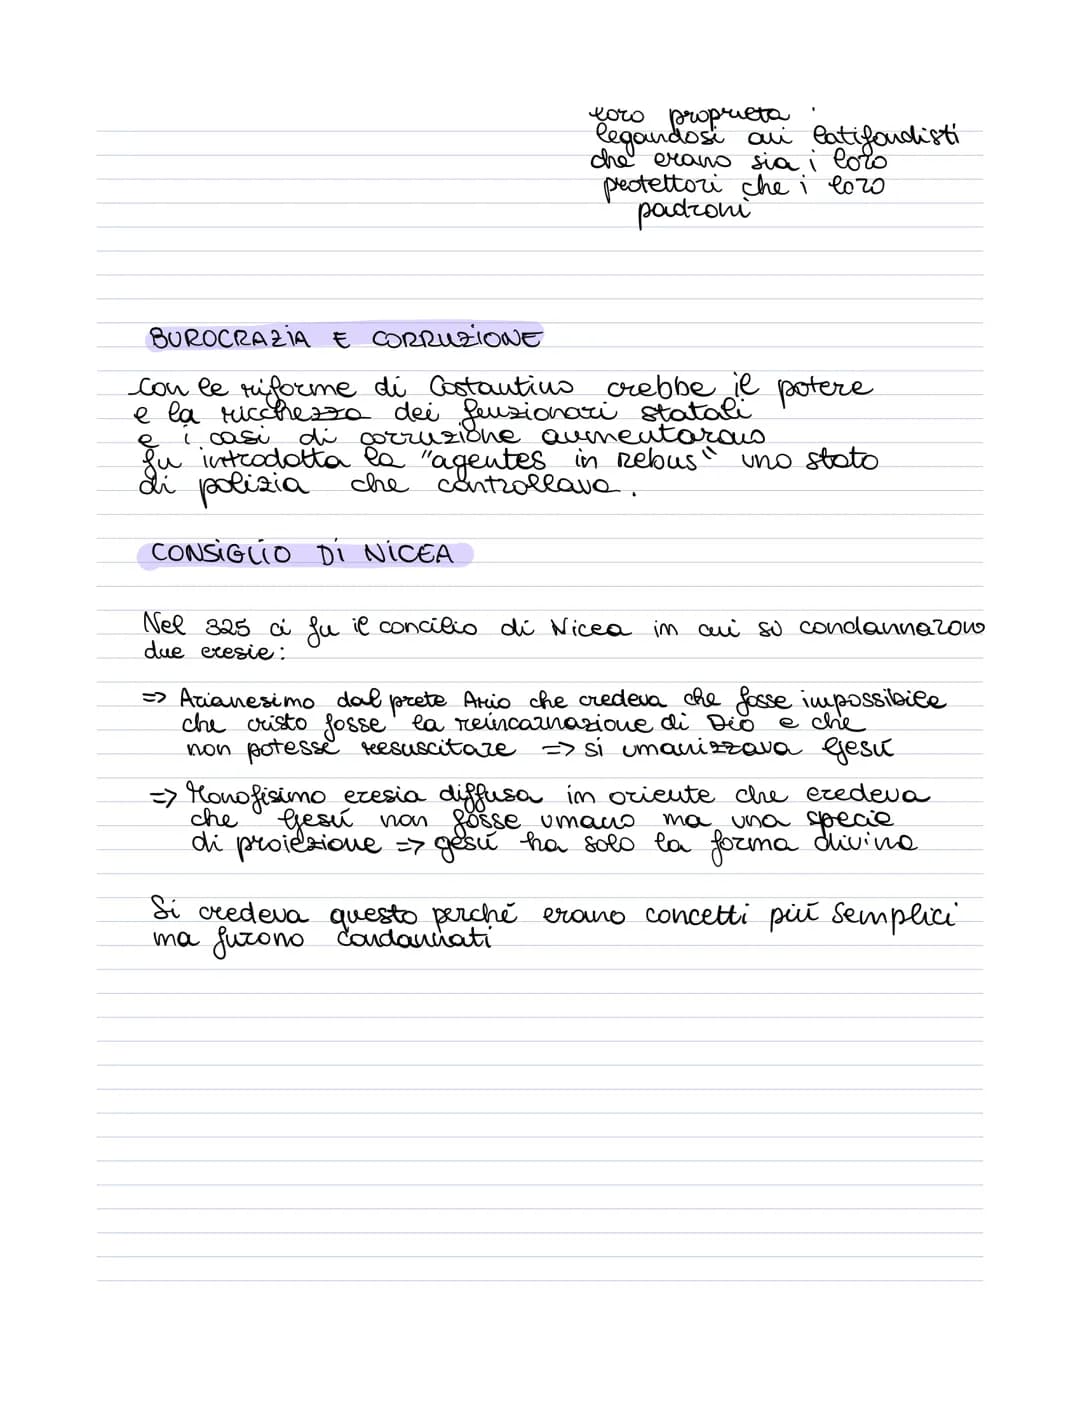 loro proprieta
legandosi ai latifondisti
che erano sia i loro
protettori che i loro
padroni
BUROCRAZIA E CORRUZIONE
Con le riforme di Costantino crebbe il potere
e la ricchezza dei funzionari statali
e i casi di corruzione aumentarono
fu introdotta la "agentes in rebus" uno stato
di polizia che controllava.
CONSIGLIO DI NICEA
Nel 325 ci fu il concilio di Nicea in cui si condannarono
due eresie:
=> Arianesimo dal prete Ario che credeva che fosse impossibile
che cristo fosse la reincarnazione di Dio e che
non potesse resuscitare => si umanizzava Gesú
=> Monofisimo eresia diffusa in oriente che credeva
che Gesú non fosse umano ma una specie
di proiezione => gesú ha solo la forma divina
Si credeva questo perché erano concetti piú semplici
ma furono condannati